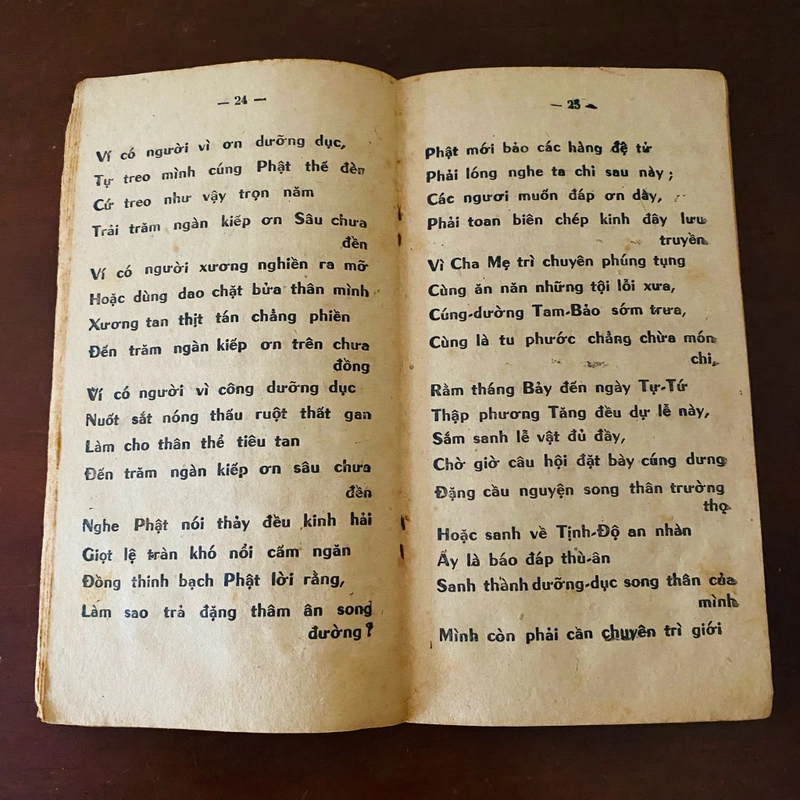 — 24 —
Ví có người vì ơn dưỡng dục,
Tự treo mình cúng Phật thế đèn
Cứ treo như vậy trọn năm
Trải trăm ngàn kiếp ơn Sâu chưa
đền
Ví có người xương nghiền ra mỡ
Hoặc dùng dao chặt bửa thân mình
Xương tan thịt tán chẳng phiền
Đến trăm ngàn kiếp ơn trên chưa
đồng
Ví có người vì công dưỡng dục
Nuốt sắt nóng thấu ruột thất gan
Làm cho thân thể tiêu tan
Đến trăm ngàn kiếp ơn sâu chưa
đền
Nghe Phật nói thảy đều kinh hải
Giọt lệ tràn khó nổi cầm ngăn
Đồng thinh bạch Phật lời rằng,
Làm sao trả đặng thâm ân song
đường?
— 25 —
Phật mới bảo các hàng đệ tử
Phải lóng nghe ta chỉ sau này;
Các ngươi muốn đáp ơn dày,
Phải toan biên chép kinh đây lưu
truyền
Vì Cha Mẹ trì chuyên phúng tụng
Cùng ăn năn những tội lỗi xưa,
Cúng-dường Tam-Bảo sớm trưa,
Cùng là tu phước chẳng chừa món
chi,
Rằm tháng Bảy đến ngày Tự-Tứ
Thập phương Tăng đều dự lễ này,
Sắm sanh lễ vật đủ đầy,
Chờ giờ câu hội đặt bày cúng dưng
Đặng cầu nguyện song thân trường
thọ
Hoặc sanh về Tịnh-Độ an nhàn
Ấy là báo đáp thù-ân
Sanh thành dưỡng-dục song thân của
mình
Mình còn phải cần chuyên trì giới